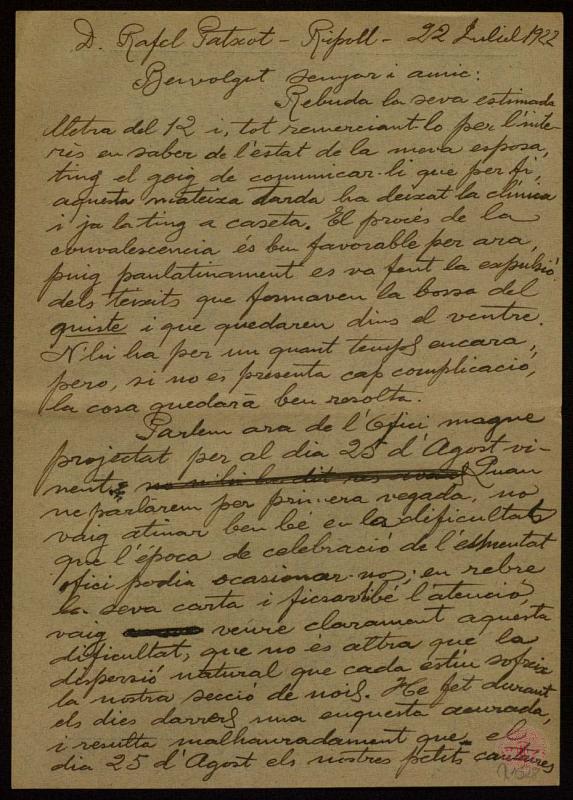 D. Rafel Patxot - Ripoll - 22 Juliol 1922
Benvolgut senyor i amic:
Rebuda la seva estimada
lletra del 12 i, tot remerciant-lo per l'inte-
rès en saber de l'estat de la meva esposa,
ting el goig de comunicar-li que per fi,
aquesta mateixa tarda ha deixat la clínica
i ja la ting a caseta. El procés de la
convalescencia és ben favorable per ara,
puig paulatinament es va fent la expulsió
dels teixits que formaven la bossa del
quiste i que quedaren dins el ventre.
N'hi ha per un quant temps encara,
pero, si no es presenta cap complicació,
la cosa quedarà ben resolta.
Parlem ara de l'Ofici magne
projectat per al dia 25 d'Agost vi-
nent. Quan
ne parlarem per primera vegada, no
vaig atinar ben bé en la dificultat
que l'época de celebració de l'esmentat
ofici podia ocasionar-nos; en rebre
la seva carta i ficsar-hi bé l'atenció,
vaig veure clarament aquesta
dificultat, que no és altra que la
dispersió natural que cada estiu sofreix
la nostra secció de nois. He fet durant
els dies darrers una enquesta acurada,
i resulta malhauradament que el
dia 25 d'Agost els nostres petits cantaires